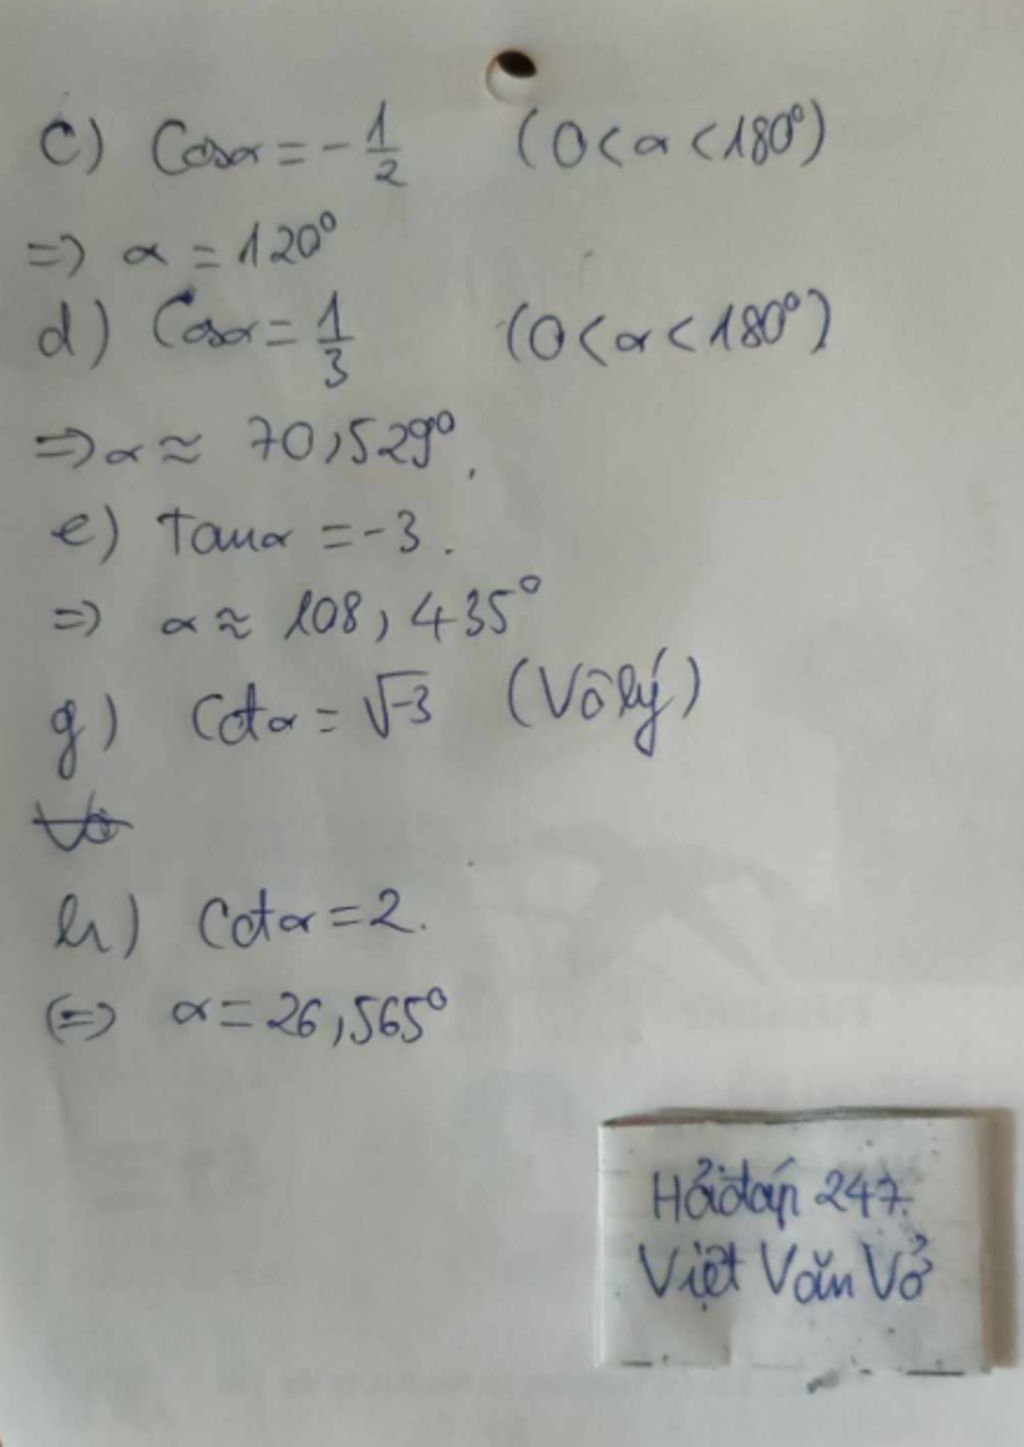 c) Cosα = -1/2 (0 < α < 180°)
=> α = 120°
d) Cosα = 1/3 (0 < α < 180°)
=> α ≈ 70,529°.
e) Tanα = -3.
=> α ≈ 108,435°
g) Cotα = √-3 (Vô lý)
Vô
h) Cotα = 2.
(=> α = 26,565°
Hỏi đáp 247.
Việt Văn Vở